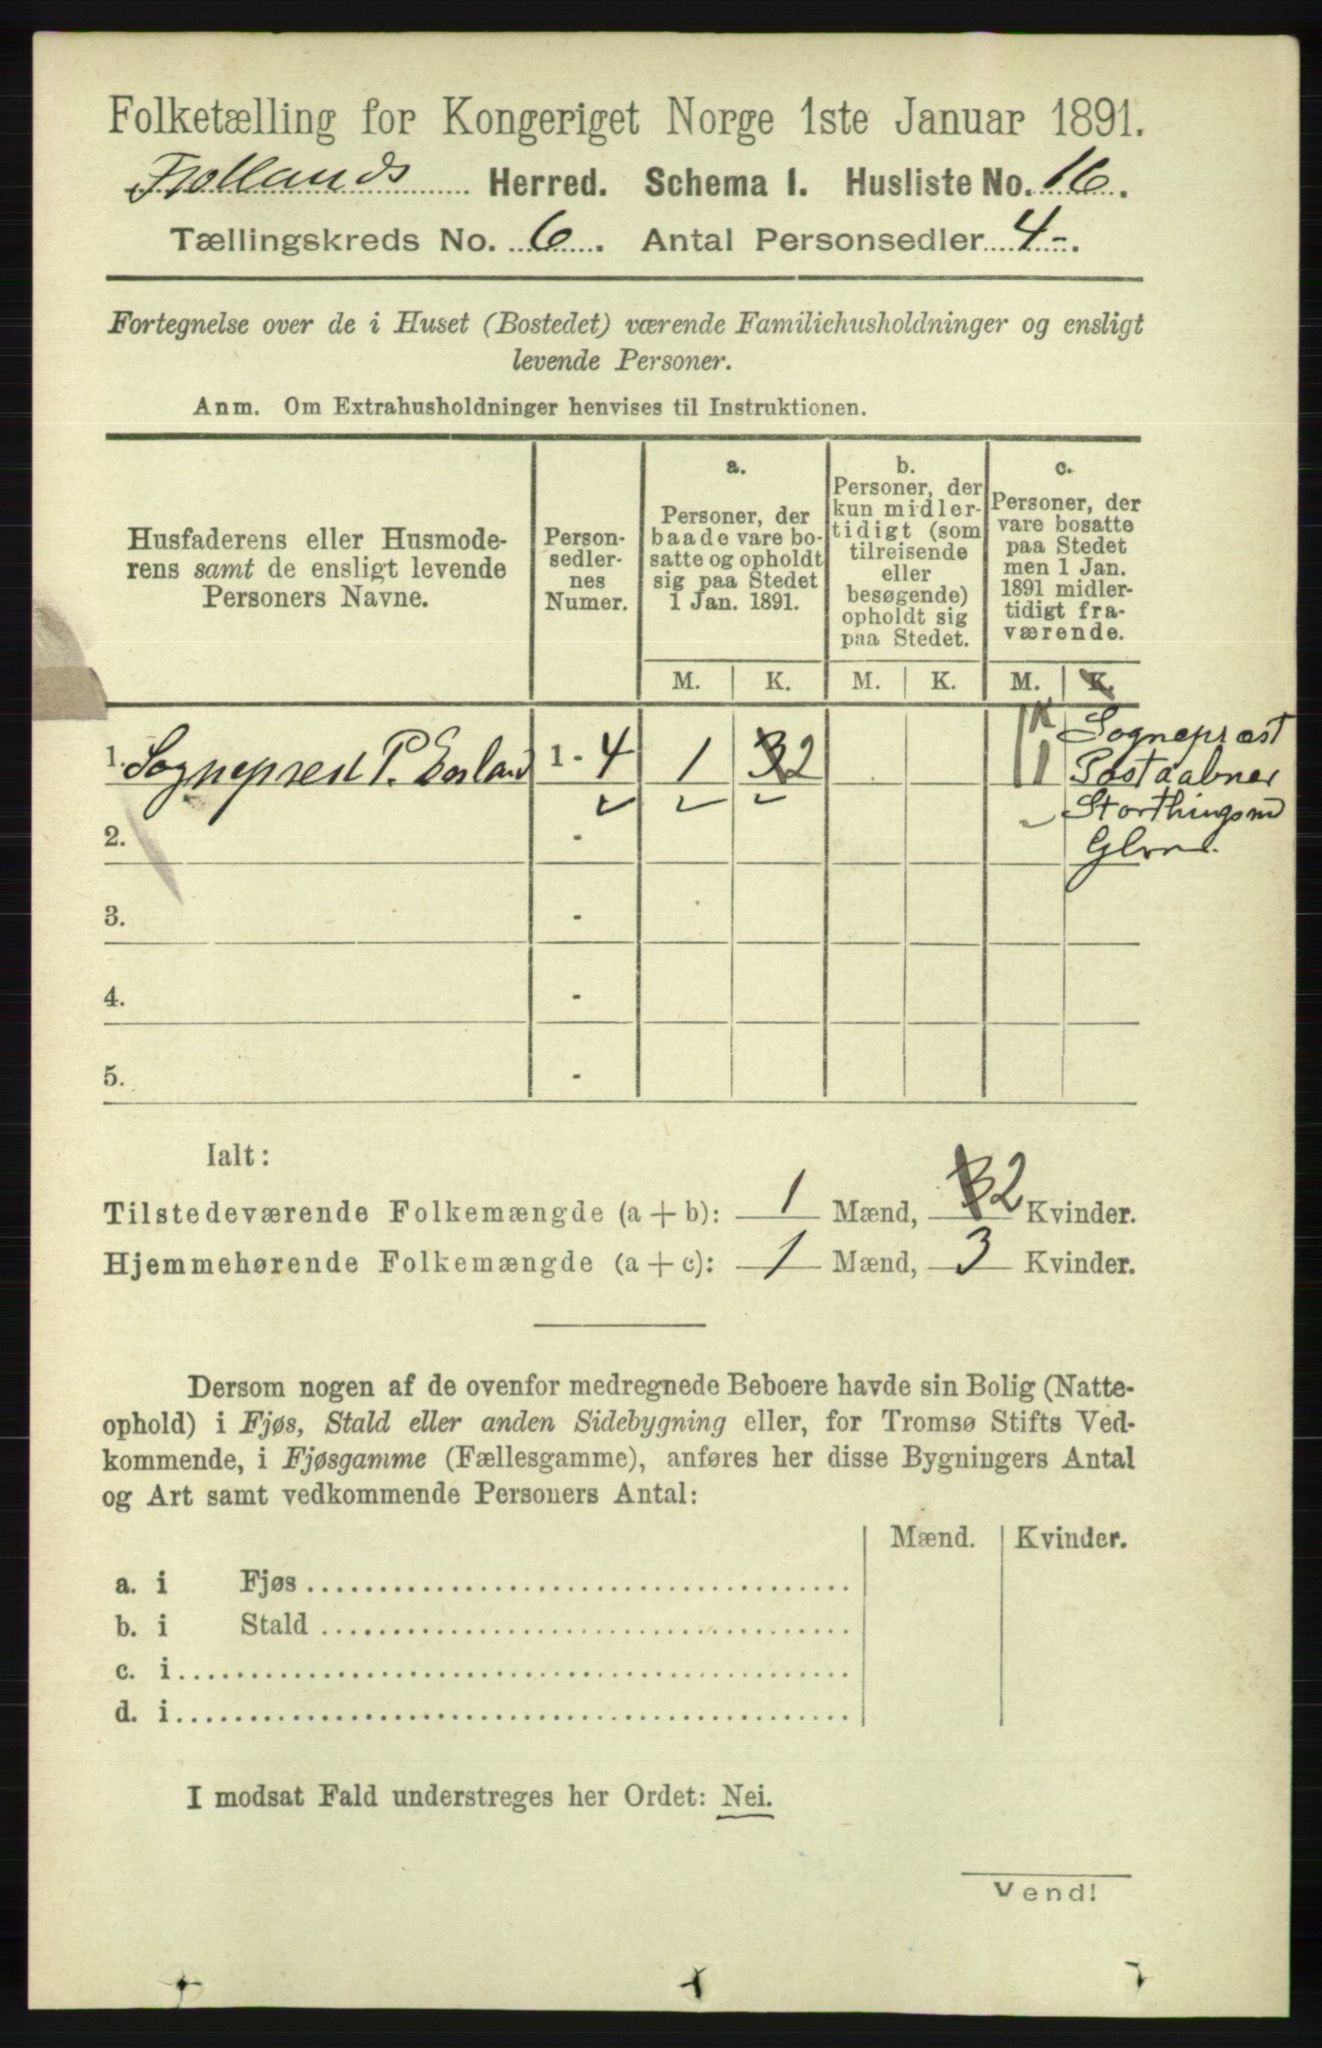 Folketælling for Kongeriget Norge 1ste Januar 1891.
Fjotlands Herred. Schema 1. Husliste No. 16.
Tællingskreds No. 6. Antal Personsedler 4-.
Fortegnelse over de i Huset (Bostedet) værende Familiehusholdninger og ensligt
levende Personer.
Anm. Om Extrahusholdninger henvises til Instruktionen.
Husfaderens eller Husmode-
rens samt de ensligt levende
Personers Navne.
Person-
sedler-
nes
Numer.
a.
Personer, der
baade vare bo-
satte og opholdt
sig paa Stedet
1 Jan. 1891.
b.
Personer, der
kun midler-
tidigt (som
tilreisende
eller
besøgende)
opholdt sig
paa Stedet.
c.
Personer, der
vare bosatte
paa Stedet
men 1 Jan.
1891 midler-
tidigt fra-
værende.
M. K. M. K. M. K.
1. Sogneprest P. 1 - 4 1 3 2 1 K 1 Sogneprest
Postaabner
2. - Storthingsmd
3. -
4. -
5. -
Ialt:
Tilstedeværende Folkemængde (a + b): 1 Mænd, 3 2 Kvinder.
Hjemmehørende Folkemængde (a + c): 1 Mænd, 3 Kvinder.
Dersom nogen af de ovenfor medregnede Beboere havde sin Bolig (Natte-
ophold) i Fjøs, Stald eller anden Sidebygning eller, for Tromsø Stifts Ved-
kommende, i Fjøsgamme (Fællesgamme), anføres her disse Bygningers Antal
og Art samt vedkommende Personers Antal:
Mænd. Kvinder.
a. i Fjøs
b. i Stald
c. i
d. i
I modsat Fald understreges her Ordet: Nei.
Vend!